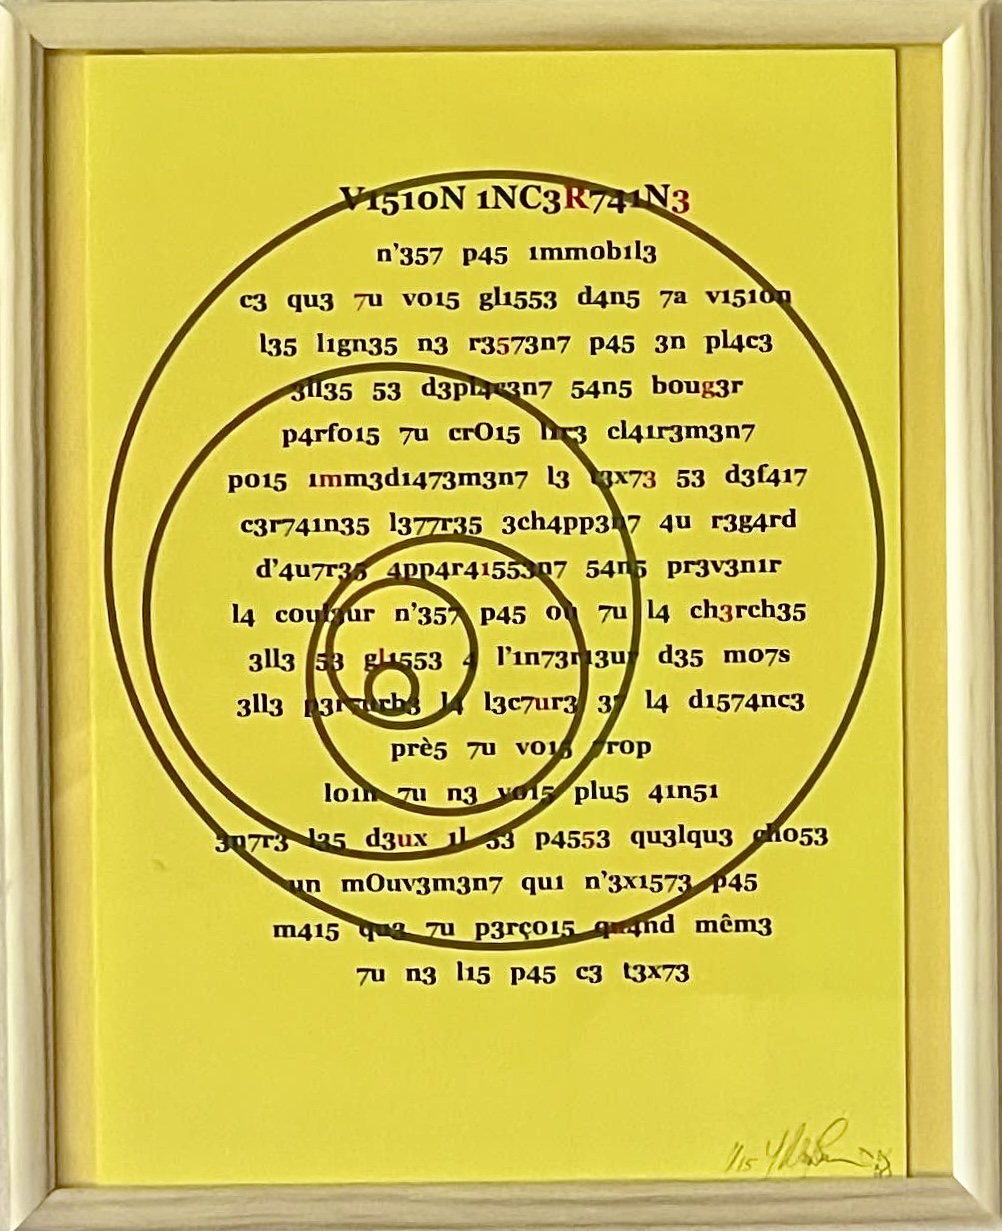 V1510N 1NC3R741N3
n'357 p45 1mmob1l3
c3 qu3 7u vo15 gl1553 d4n5 7a v1510n
l35 l1gn35 n3 r3573n7 p45 3n pl4c3
3ll35 53 d3pl4c3n7 54n5 boug3r
p4rfo15 7u crO15 l1r3 cl41r3m3n7
po15 1mm3d1473m3n7 l3 t3x73 53 d3f417
c3r741n35 l377r35 3ch4pp3n7 4u r3g4rd
d'4u7r35 4pp4r41553n7 54n5 pr3v3n1r
l4 coul3ur n'357 p45 où 7u l4 ch3rch35
3ll3 53 gl1553 4 l'1n73r13ur d35 mo7s
3ll3 p3r7urb3 l4 l3c7ur3 37 l4 d1574nc3
prè5 7u vo15 7rop
lo1n 7u n3 vo15 plu5 41n51
3n7r3 l35 d3ux 1l 53 p4553 qu3lqu3 cho53
un mOuv3m3n7 qu1 n'3x1573 p45
m415 qu3 7u p3rço15 qu4nd mêm3
7u n3 l15 p45 c3 t3x73
1/15